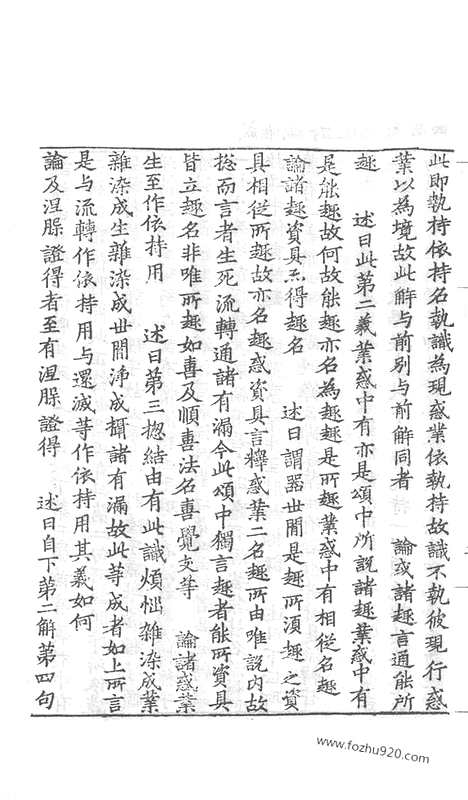 此即執持依持名執識為現惑業依執持故識不執彼現行惑
業以為境故此解与前別与前解同者　論或諸趣言通能所
趣　述曰此第二義業惑中有亦是頌中所說諸趣業惑中有
是能趣故何故能趣亦名為趣趣是所趣業惑中有相從名趣
論諸趣資具亦得趣名　述曰謂器世間是趣所須趣之資
具相從所趣故亦名趣惑資具言釋惑業二名趣所由唯說内故
揔而言者生死流轉通諸有漏今此頌中獨言趣者能所資具
皆立趣名非唯所趣如喜及順喜法名喜覺支等　論諸惑業
生至作依持用　述曰第三揔結由有此識煩惱雜染成業
雜染成生雜染成世間淨成攝諸有漏故此等成者如上所言
是与流轉作依持用与還滅等作依持用其義如何
論及涅槃證得者至有涅槃證得　述曰自下第二解第四句
www.fozhu920.com